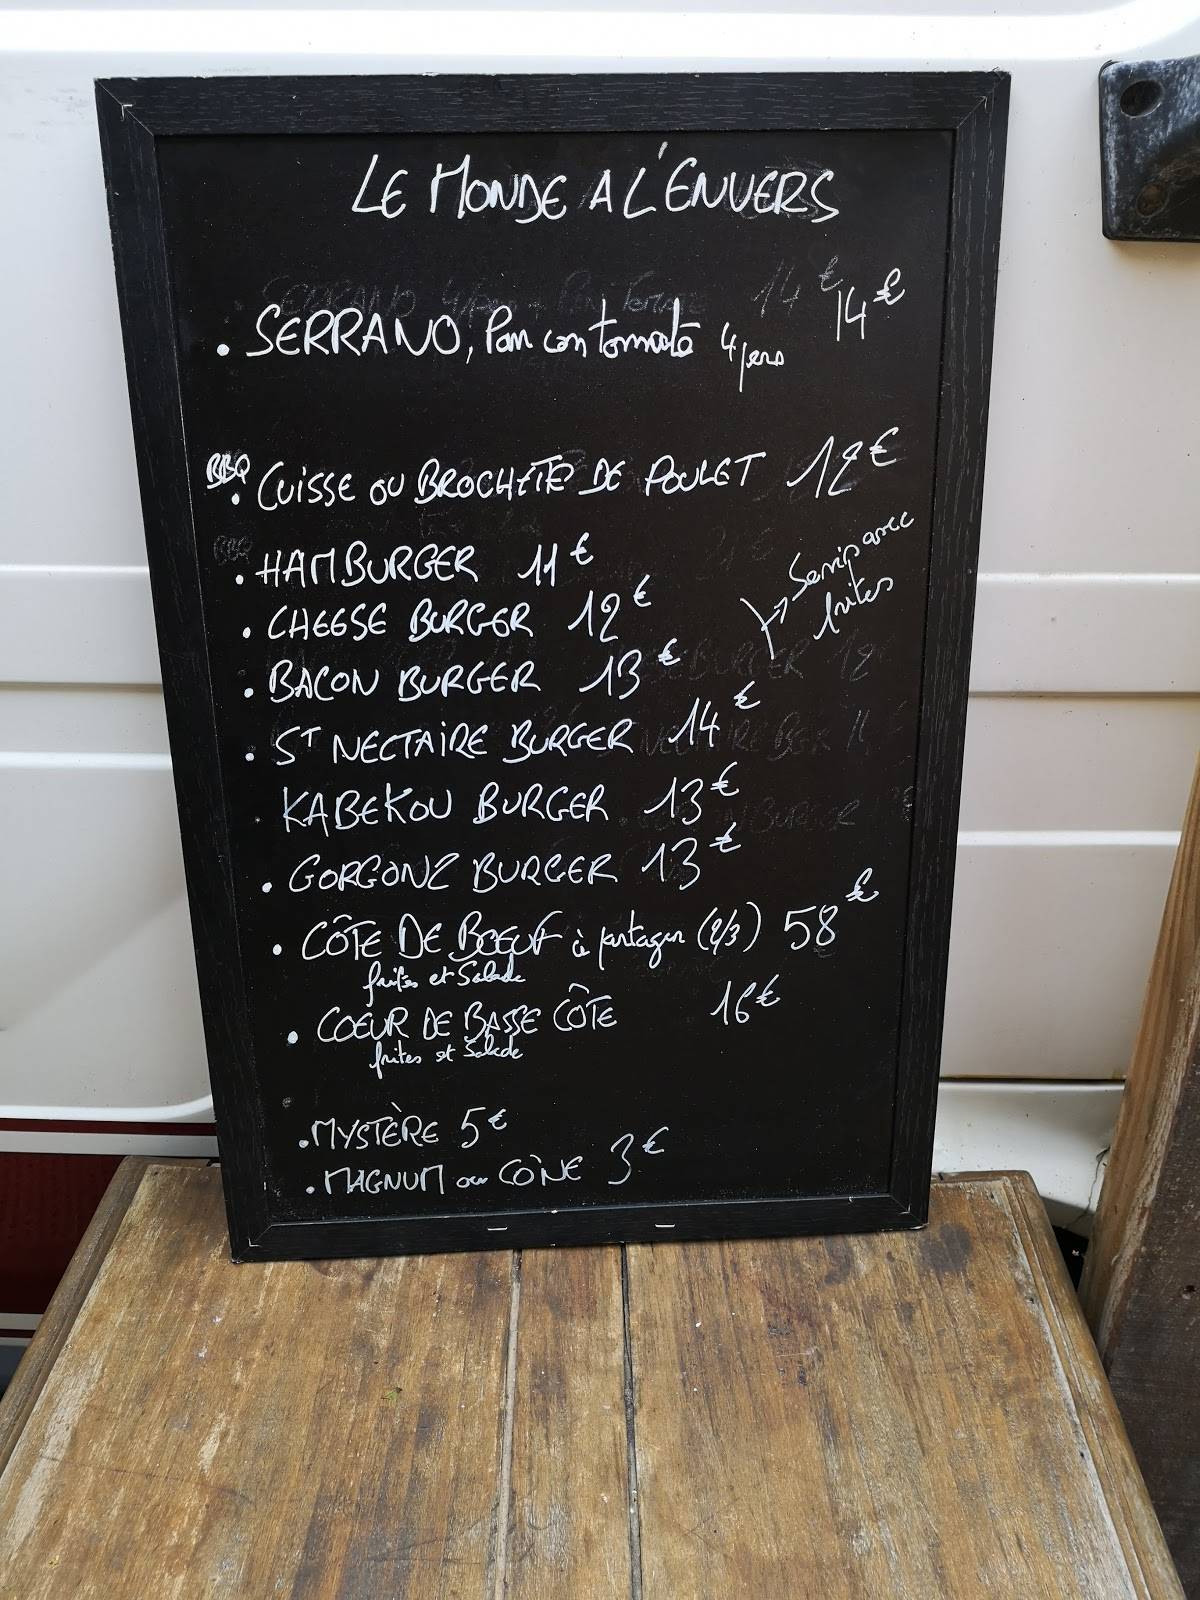 LE MONDE A L'ENVERS
. SERRANO, Pan con tomate 4 pers 14€
BBQ . CUISSE OU BROCHETTE DE POULET 12€
. HAMBURGER 11€
. CHEESE BURGER 12€
Servis avec
frites
. BACON BURGER 13€
. ST NECTAIRE BURGER 14€
KABEKOU BURGER 13€
. GORGONZ BURGER 13€
. CÔTE DE BŒUF à partager (2/3) 58€
frites et Salade
. COEUR DE BASSE CÔTE 16€
frites et Salade
. MYSTÈRE 5€
. MAGNUM ou CÒNE 3€